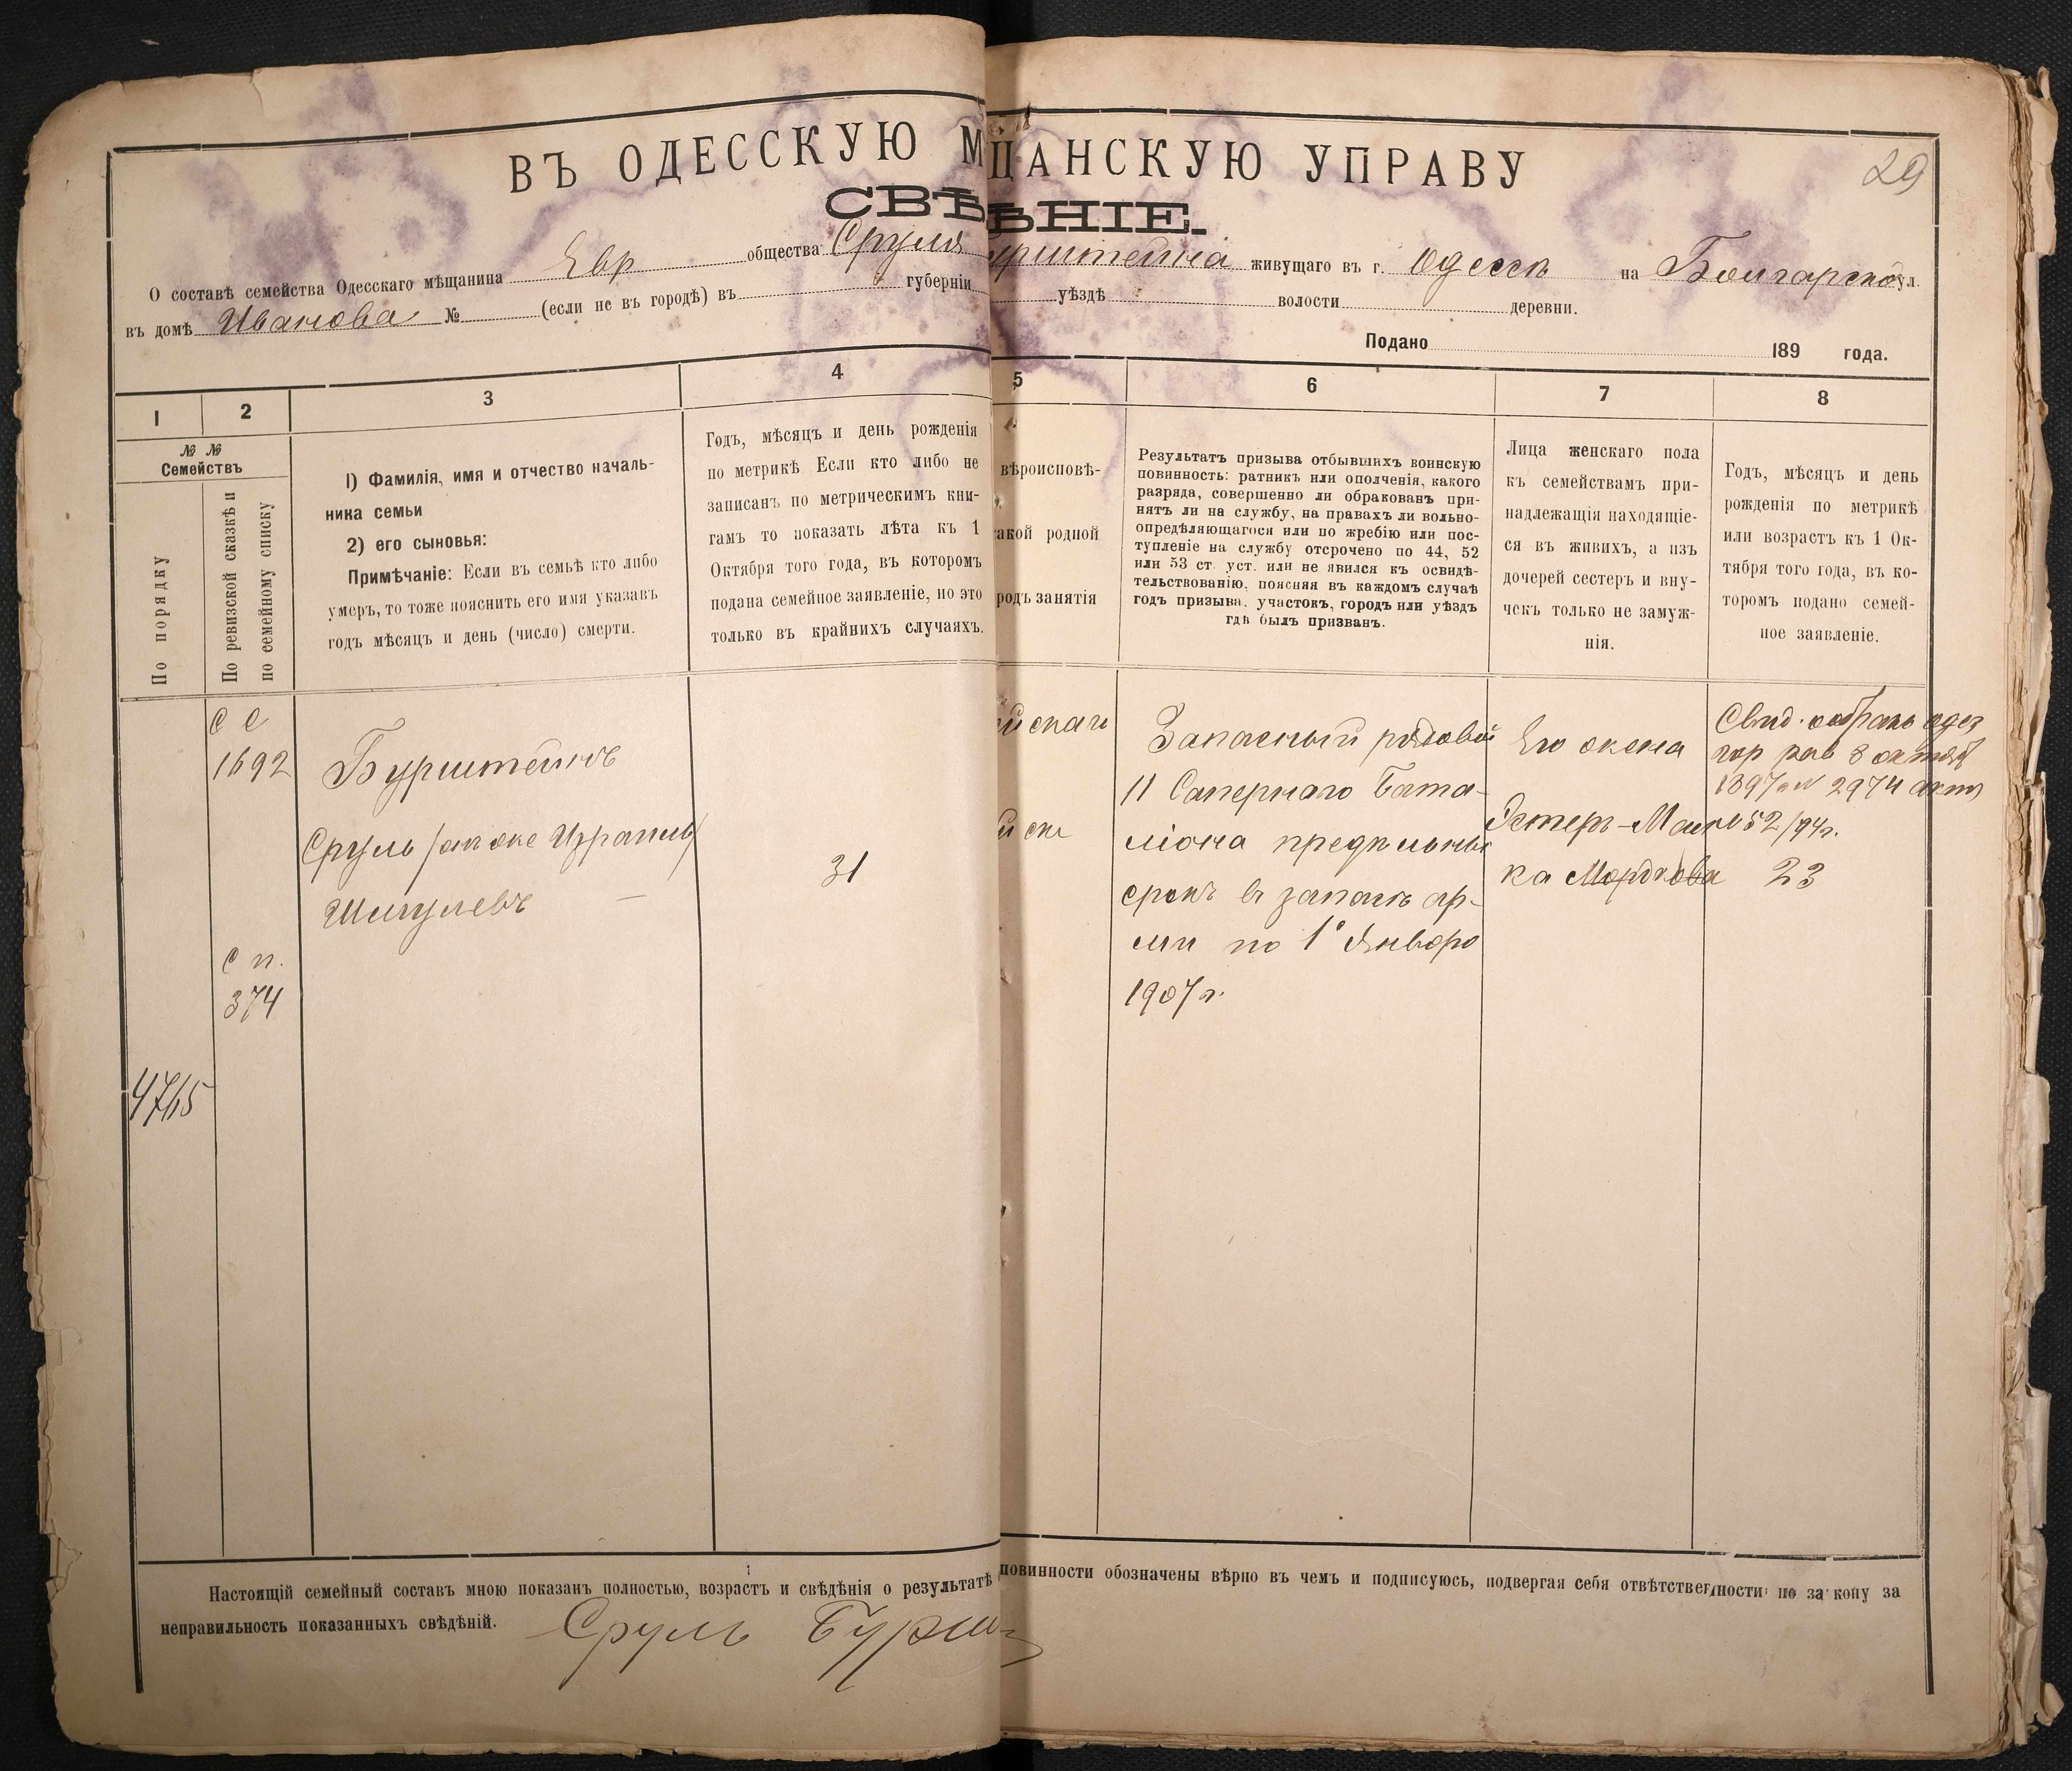 29
ВЪ ОДЕССКУЮ М ЩАНСКУЮ УПРАВУ
СВѢ ѢНІЕ.
О составѣ семейства Одесскаго мѣщанина Евр общества Сруля урштейна живущаго въ г. Одессѣ на Болгарской ул.
въ домѣ Иванова № (если не въ городѣ) въ губерніи уѣздѣ волости деревни.
Подано 189 года.
1 2 3 4 5 6 7 8
№ № Семействъ
По порядку
По ревизской сказкѣ и по семейному списку
1) Фамилія, имя и отчество началь-
ника семьи
2) его сыновья:
Примѣчаніе: Если въ семьѣ кто либо
умеръ, то тоже пояснить его имя указавъ
годъ мѣсяцъ и день (число) смерти.
Годъ, мѣсяцъ и день рожденія
по метрикѣ Если кто либо не
записанъ по метрическимъ кни-
гамъ то показать лѣта къ 1
Октября того года, въ которомъ
подана семейное заявленіе, но это
только въ крайнихъ случаяхъ.
вѣроисповѣ-
акой родной
родъ занятія
Результатъ призыва отбывшихъ воинскую
повинность: ратникъ или ополченія, какого
разряда, совершенно ли обракованъ при-
нятъ ли на службу, на правахъ ли вольно-
опредѣляющагося или по жребію или пос-
тупленіе на службу отсрочено по 44, 52
или 53 ст. уст. или не явился къ освидѣ-
тельствованію, поясняя въ каждомъ случаѣ
годъ призыва, участокъ, городъ или уѣздъ
гдѣ былъ призванъ.
Лица женскаго пола
къ семействамъ при-
надлежащія находящіе-
ся въ живихъ, а изъ
дочерей сестеръ и вну-
чекъ только не замуж-
нія.
Годъ, мѣсяцъ и день
рожденія по метрикѣ
или возрастъ къ 1 Ок-
тября того года, въ ко-
торомъ подано семей-
ное заявленіе.
С С
1692
С п.
374
4765
Бурштейнъ
Сруль /онъ же Израиль/
Шмулевъ —
31
йскаго
йске
Запасный рядовой
11 Сапернаго Бата-
ліона предѣльный
срокъ въ запасѣ ар-
міи по 1е Января
1907 г.
Его жена
Эстеръ-Маль
ка Мордкова
Свид. одес
гор рав 8 октяб
1897 г № 2974 актъ
52/94г.
23
Настоящій семейный составъ мною показанъ полностью, возрастъ и свѣдѣнія о результатѣ повинности обозначены вѣрно въ чемъ и подписуюсь, подвергая себя отвѣтственности по закону за
неправильность показанныхъ свѣдѣній. Сруль Бурш